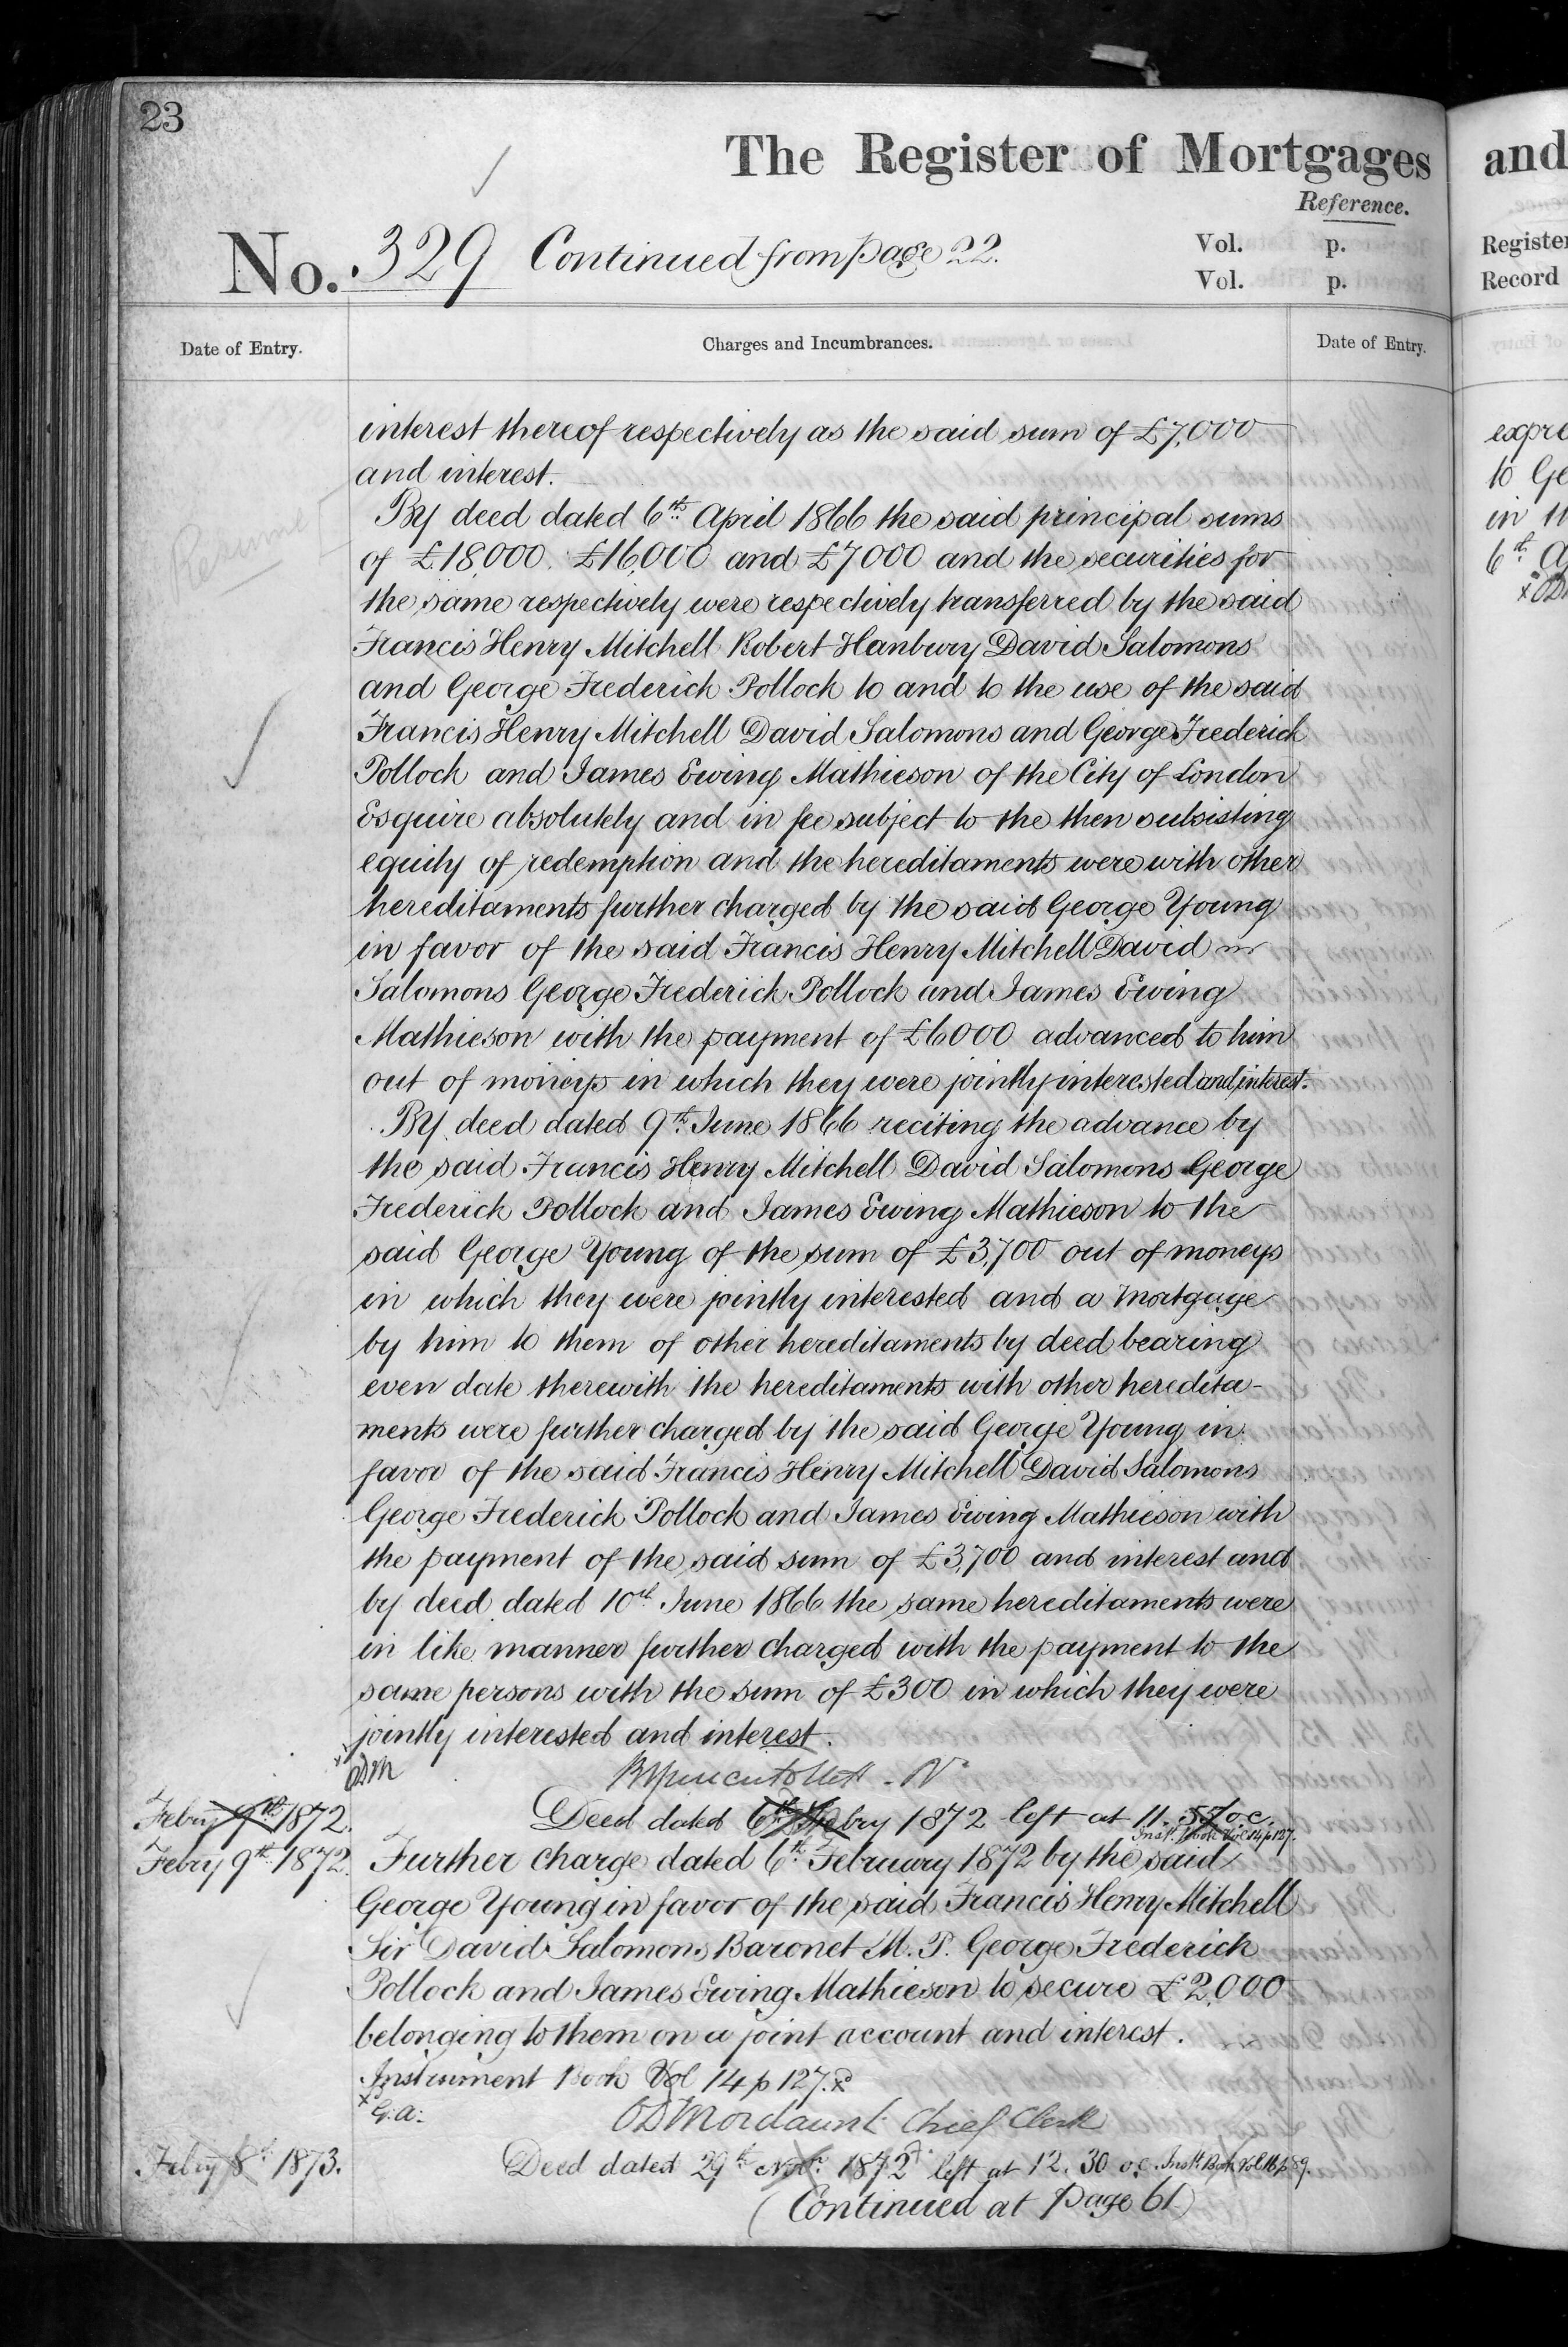 23
The Register of Mortgages
Reference.
No. 329 Continued from page 22.
Vol. p.
Vol. p.
Date of Entry.
Charges and Incumbrances.
Date of Entry.
interest thereof respectively as the said sum of £7,000
and interest.
By deed dated 6th April 1866 the said principal sums
of £18,000. £16,000 and £7000 and the securities for
the same respectively were respectively transferred by the said
Francis Henry Mitchell Robert Hanbury David Salomons
and George Frederick Pollock to and to the use of the said
Francis Henry Mitchell David Salomons and George Frederick
Pollock and James Ewing Mathieson of the City of London
Esquire absolutely and in fee subject to the then subsisting
equity of redemption and the hereditaments were with other
hereditaments further charged by the said George Young
in favor of the said Francis Henry Mitchell David
Salomons George Frederick Pollock and James Ewing
Mathieson with the payment of £6000 advanced to him
out of moneys in which they were jointly interested and interest.
By deed dated 9th June 1866 reciting the advance by
the said Francis Henry Mitchell David Salomons George
Frederick Pollock and James Ewing Mathieson to the
said George Young of the sum of £3,700 out of moneys
in which they were jointly interested and a Mortgage
by him to them of other hereditaments by deed bearing
even date therewith the hereditaments with other heredita-
ments were further charged by the said George Young in
favor of the said Francis Henry Mitchell David Salomons
George Frederick Pollock and James Ewing Mathieson with
the payment of the said sum of £3,700 and interest and
by deed dated 10th June 1866 the same hereditaments were
in like manner further charged with the payment to the
same persons with the sum of £300 in which they were
jointly interested and interest.
x ODM
Febry 9th 1872. Deed dated 6th Febry 1872 left at 11.57 o.c.
Inst. Book Vol 14 p 127.
Febry 9th 1872. Further charge dated 6th February 1872 by the said
George Young in favor of the said Francis Henry Mitchell
Sir David Salomons Baronet M.P. George Frederick
Pollock and James Ewing Mathieson to secure £2,000
belonging to them on a joint account and interest.
Instrument Book Vol 14 p 127. x
x G.A.
ODMordaunt Chief Clerk
Febry 8th 1873. Deed dated 29th Novr. 1872 left at 12.30 o.c. Instt Book Vol. 16 p 89.
(Continued at Page 61)
and
Register
Record
expre
to Ge
in
6th